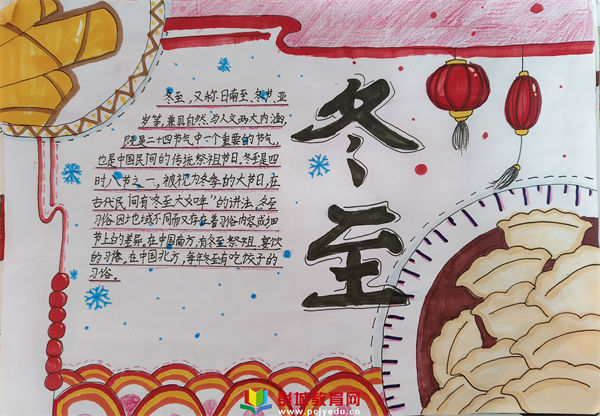 冬至，又称日南至、冬节、亚
岁等，兼具自然与人文两大内涵
既是二十四节气中一个重要的节气，
也是中国民间的传统祭祖节日，冬至是四
时八节之一，被视为冬季的大节日，在
古代民间有“冬至大如年”的讲法，冬至
习俗因地域不同而又存在着习俗内容或细
节上的差异。在中国南方，有冬至祭祖、宴饮
的习俗。在中国北方，每年冬至有吃饺子的
习俗。
冬至
教育网
www.pcjyedu.cn